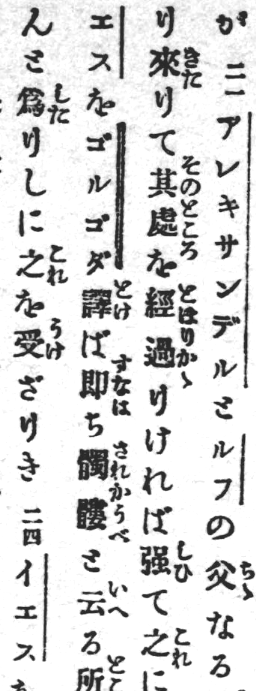 が 二一アレキサンデルとルフの父なる
り來りて其處を經過りければ强て之に
エスをゴルゴダ譯ば即ち髑髏と云る所
んと爲りしに之を受ざりき 二四イエス